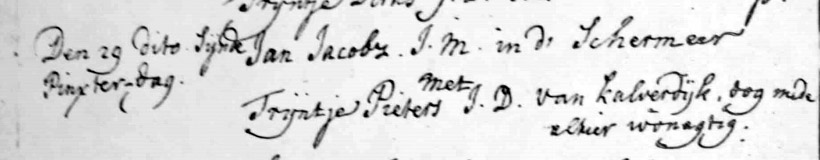 Den 29 dito. Sijnde Jan Jacobz. J. M. in d' Schermeer
Pinxter-dag.
met
Trijntje Pieters J. D. van Kalverdijk, dog mede
alhier wonagtig.